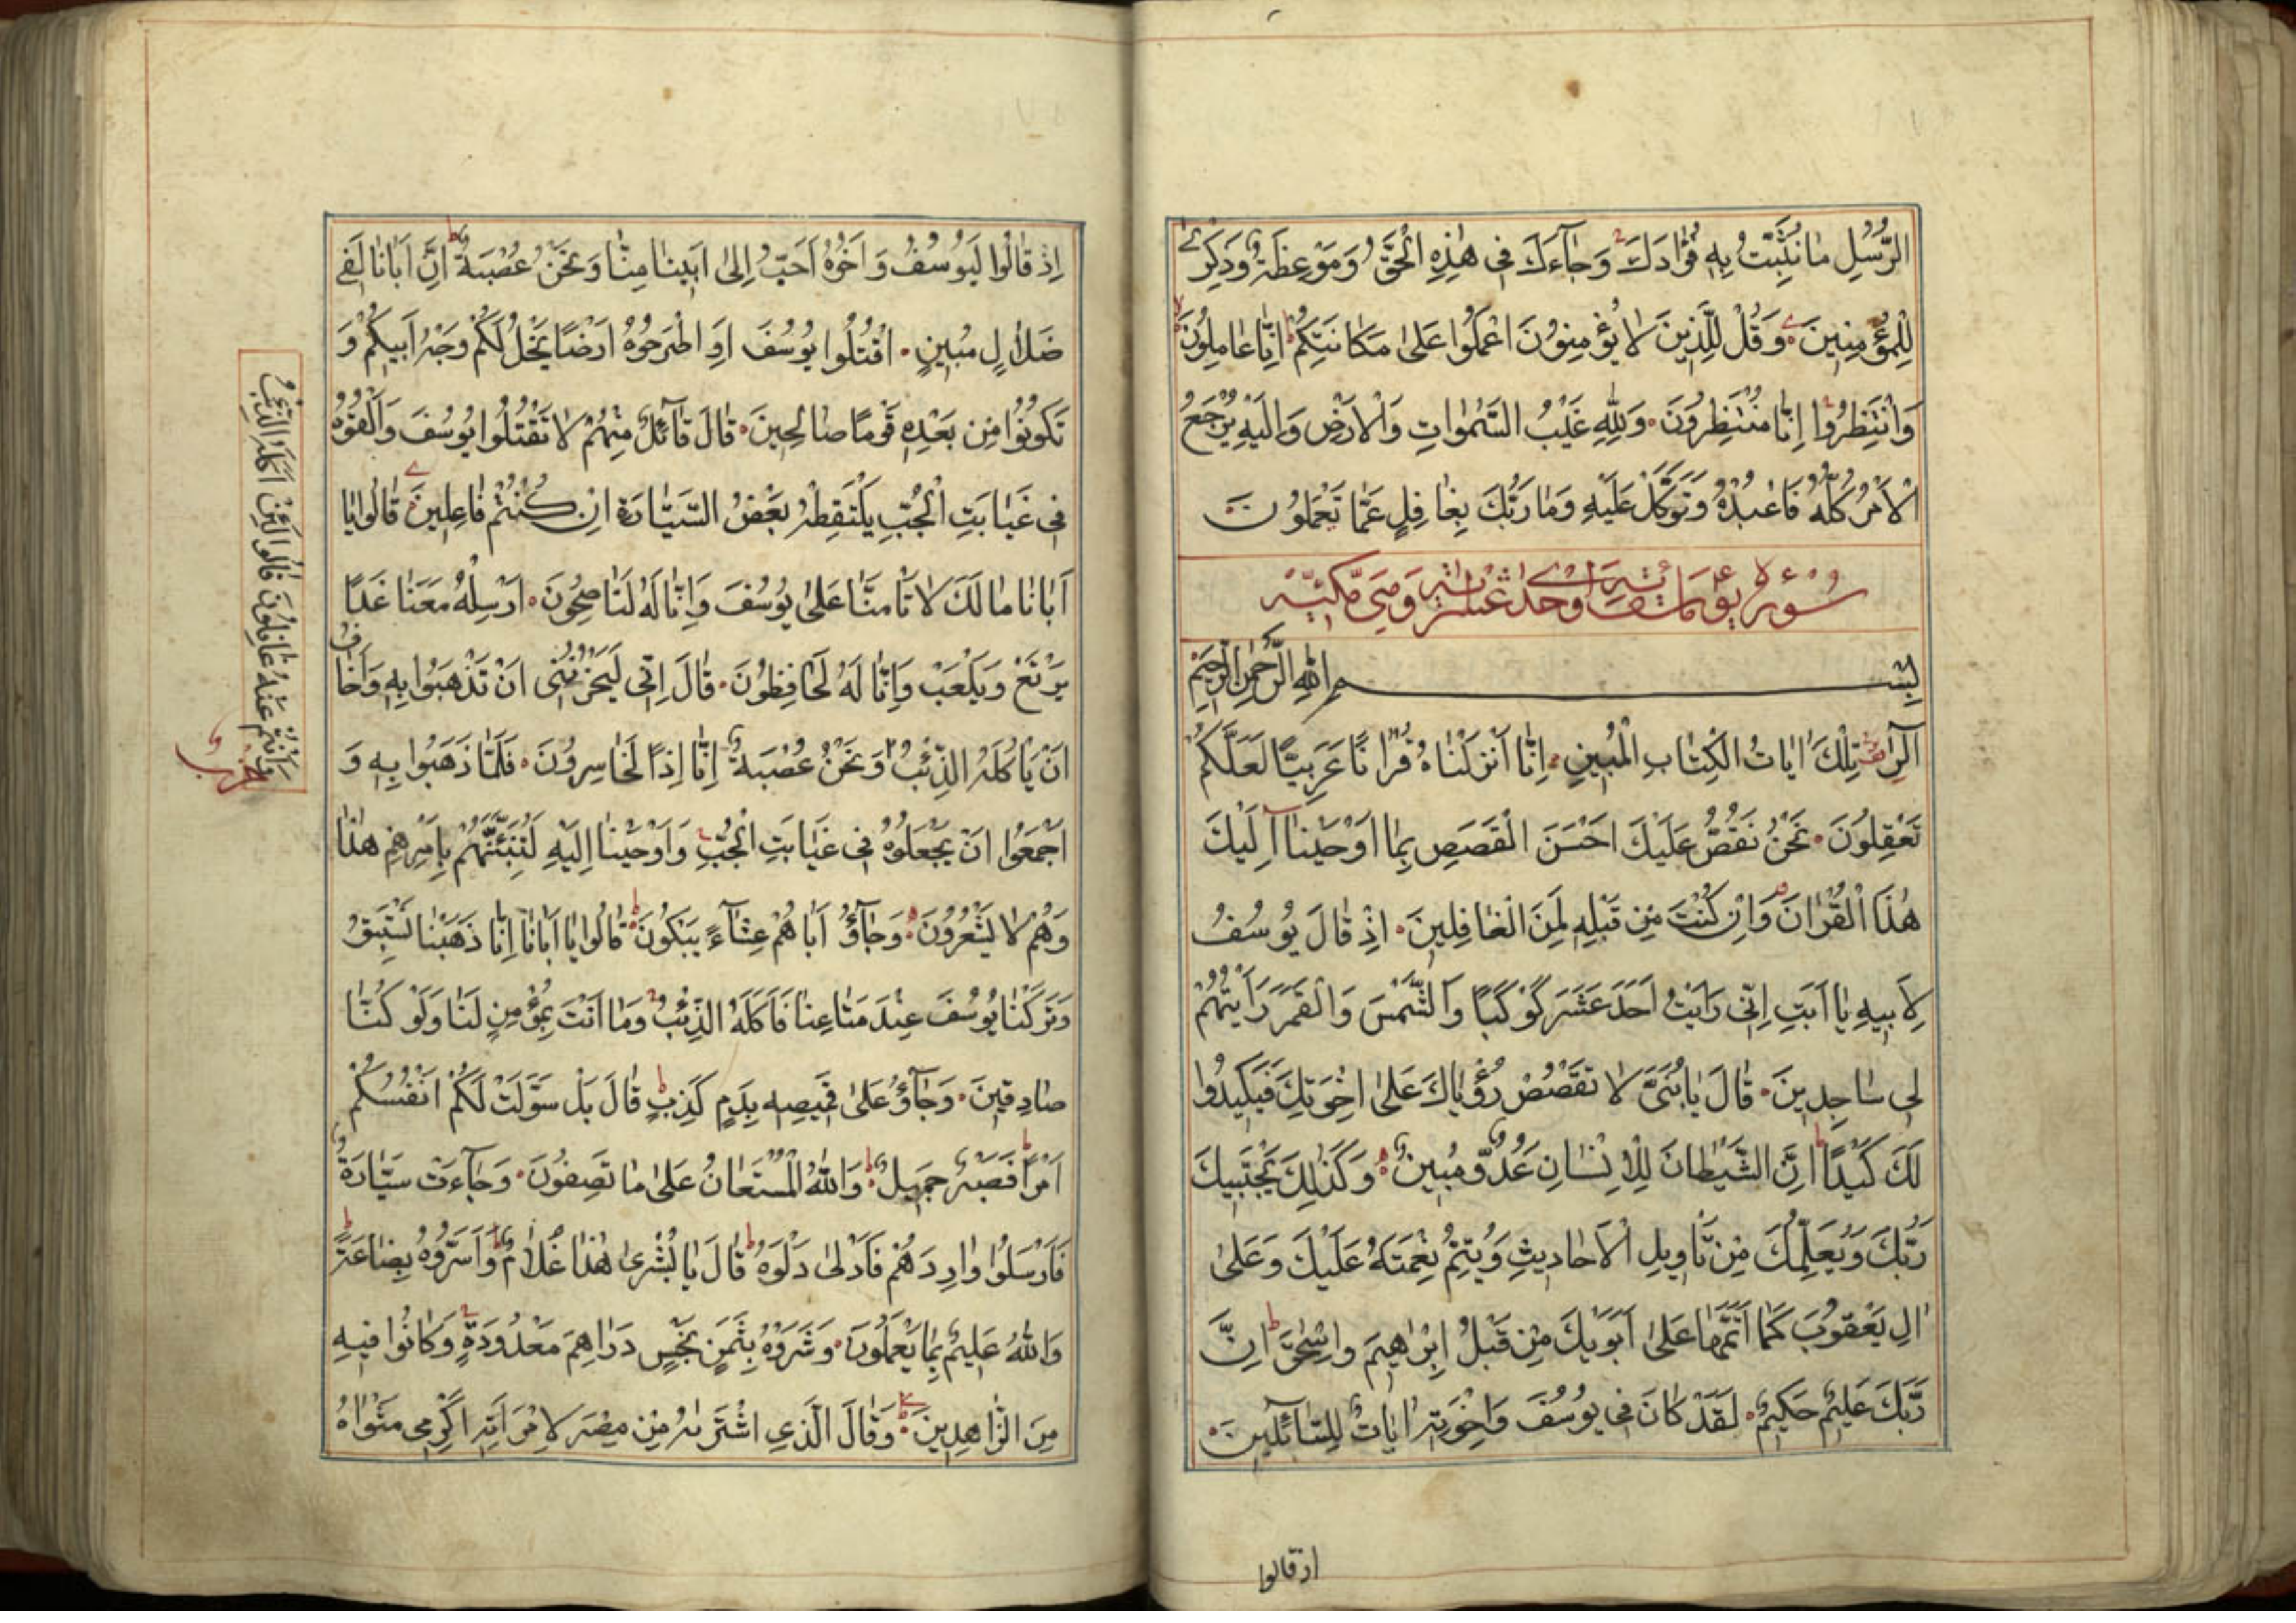 الرُّسُلِ مَا نُثَبِّتُ بِهِ فُؤَادَكَ وَجَآءَكَ فِي هٰذِهِ الْحَقُّ وَمَوْعِظَةٌ وَذِكْرٰى
لِلْمُؤْمِنِينَ وَقُلْ لِلَّذِينَ لَا يُؤْمِنُونَ اعْمَلُوا عَلٰى مَكَانَتِكُمْ اِنَّا عَامِلُونَ
وَانْتَظِرُوا اِنَّا مُنْتَظِرُونَ وَلِلّٰهِ غَيْبُ السَّمٰوَاتِ وَالْاَرْضِ وَاِلَيْهِ يُرْجَعُ
الْاَمْرُ كُلُّهُ فَاعْبُدْهُ وَتَوَكَّلْ عَلَيْهِ وَمَا رَبُّكَ بِغَافِلٍ عَمَّا تَعْمَلُونَ
سُورَةُ يوسف مائة واحدى عشر آية وَهِيَ مَكِّيَّة
بِسْمِ اللّٰهِ الرَّحْمٰنِ الرَّحِيمِ
الٓرٰ تِلْكَ اٰيَاتُ الْكِتَابِ الْمُبِينِ اِنَّا اَنْزَلْنَاهُ قُرْاٰنًا عَرَبِيًّا لَعَلَّكُمْ
تَعْقِلُونَ نَحْنُ نَقُصُّ عَلَيْكَ اَحْسَنَ الْقَصَصِ بِمَا اَوْحَيْنَآ اِلَيْكَ
هٰذَا الْقُرْاٰنَ وَاِنْ كُنْتَ مِنْ قَبْلِهِ لَمِنَ الْغَافِلِينَ اِذْ قَالَ يُوسُفُ
لِاَبِيهِ يَا اَبَتِ اِنِّي رَاَيْتُ اَحَدَ عَشَرَ كَوْكَبًا وَالشَّمْسَ وَالْقَمَرَ رَاَيْتُهُمْ
لِي سَاجِدِينَ قَالَ يَا بُنَيَّ لَا تَقْصُصْ رُؤْيَاكَ عَلٰى اِخْوَتِكَ فَيَكِيدُوا
لَكَ كَيْدًا اِنَّ الشَّيْطَانَ لِلْاِنْسَانِ عَدُوٌّ مُبِينٌ وَكَذٰلِكَ يَجْتَبِيكَ
رَبُّكَ وَيُعَلِّمُكَ مِنْ تَاْوِيلِ الْاَحَادِيثِ وَيُتِمُّ نِعْمَتَهُ عَلَيْكَ وَعَلٰى
اٰلِ يَعْقُوبَ كَمَا اَتَمَّهَا عَلٰى اَبَوَيْكَ مِنْ قَبْلُ اِبْرٰهِيمَ وَاِسْحٰقَ اِنَّ
رَبَّكَ عَلِيمٌ حَكِيمٌ لَقَدْ كَانَ فِي يُوسُفَ وَاِخْوَتِهِ اٰيَاتٌ لِلسَّآئِلِينَ
اذ قالوا
اِذْ قَالُوا لَيُوسُفُ وَاَخُوهُ اَحَبُّ اِلٰى اَبِينَا مِنَّا وَنَحْنُ عُصْبَةٌ اِنَّ اَبَانَا لَفِي
ضَلَالٍ مُبِينٍ اقْتُلُوا يُوسُفَ اَوِ اطْرَحُوهُ اَرْضًا يَخْلُ لَكُمْ وَجْهُ اَبِيكُمْ وَ
تَكُونُوا مِنْ بَعْدِهِ قَوْمًا صَالِحِينَ قَالَ قَآئِلٌ مِنْهُمْ لَا تَقْتُلُوا يُوسُفَ وَاَلْقُوهُ
فِي غَيَابَتِ الْجُبِّ يَلْتَقِطْهُ بَعْضُ السَّيَّارَةِ اِنْ كُنْتُمْ فَاعِلِينَ قَالُوا يَا
اَبَانَا مَا لَكَ لَا تَاْمَنَّا عَلٰى يُوسُفَ وَاِنَّا لَهُ لَنَاصِحُونَ اَرْسِلْهُ مَعَنَا غَدًا
يَرْتَعْ وَيَلْعَبْ وَاِنَّا لَهُ لَحَافِظُونَ قَالَ اِنِّي لَيَحْزُنُنِي اَنْ تَذْهَبُوا بِهِ وَاَخَافُ
اَنْ يَاْكُلَهُ الذِّئْبُ وَنَحْنُ عُصْبَةٌ اِنَّا اِذًا لَخَاسِرُونَ فَلَمَّا ذَهَبُوا بِهِ وَ
اَجْمَعُوا اَنْ يَجْعَلُوهُ فِي غَيَابَتِ الْجُبِّ وَاَوْحَيْنَا اِلَيْهِ لَتُنَبِّئَنَّهُمْ بِاَمْرِهِمْ هٰذَا
وَهُمْ لَا يَشْعُرُونَ وَجَآؤُ اَبَاهُمْ عِشَآءً يَبْكُونَ قَالُوا يَا اَبَانَا اِنَّا ذَهَبْنَا نَسْتَبِقُ
وَتَرَكْنَا يُوسُفَ عِنْدَ مَتَاعِنَا فَاَكَلَهُ الذِّئْبُ وَمَا اَنْتَ بِمُؤْمِنٍ لَنَا وَلَوْ كُنَّا
صَادِقِينَ وَجَآؤُ عَلٰى قَمِيصِهِ بِدَمٍ كَذِبٍ قَالَ بَلْ سَوَّلَتْ لَكُمْ اَنْفُسُكُمْ
اَمْرًا فَصَبْرٌ جَمِيلٌ وَاللّٰهُ الْمُسْتَعَانُ عَلٰى مَا تَصِفُونَ وَجَآءَتْ سَيَّارَةٌ
فَاَرْسَلُوا وَارِدَهُمْ فَاَدْلٰى دَلْوَهُ قَالَ يَا بُشْرٰى هٰذَا غُلَامٌ وَاَسَرُّوهُ بِضَاعَةً
وَاللّٰهُ عَلِيمٌ بِمَا يَعْمَلُونَ وَشَرَوْهُ بِثَمَنٍ بَخْسٍ دَرَاهِمَ مَعْدُودَةٍ وَكَانُوا فِيهِ
مِنَ الزَّاهِدِينَ وَقَالَ الَّذِي اشْتَرٰىهُ مِنْ مِصْرَ لِامْرَاَتِهِ اَكْرِمِي مَثْوَاهُ
اَكَلَهُ الذِّئْبُ قَالُوا لَئِنْ
وَاَنْتُمْ عَنْهُ غَافِلُونَ
حزب